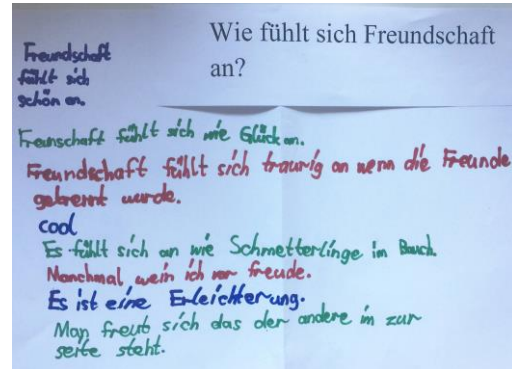 Wie fühlt sich Freundschaft
an?
Freundschaft
fühlt sich
schön an.
Freunschaft fühlt sich wie Glück an.
Freundschaft fühlt sich traurig an wenn die Freunde
getrennt wurde.
cool
Es fühlt sich an wie Schmetterlinge im Bauch.
Manchmal wein ich vor freude.
Es ist eine Erleichterung.
Man freut sich das der andere im zur
seite steht.